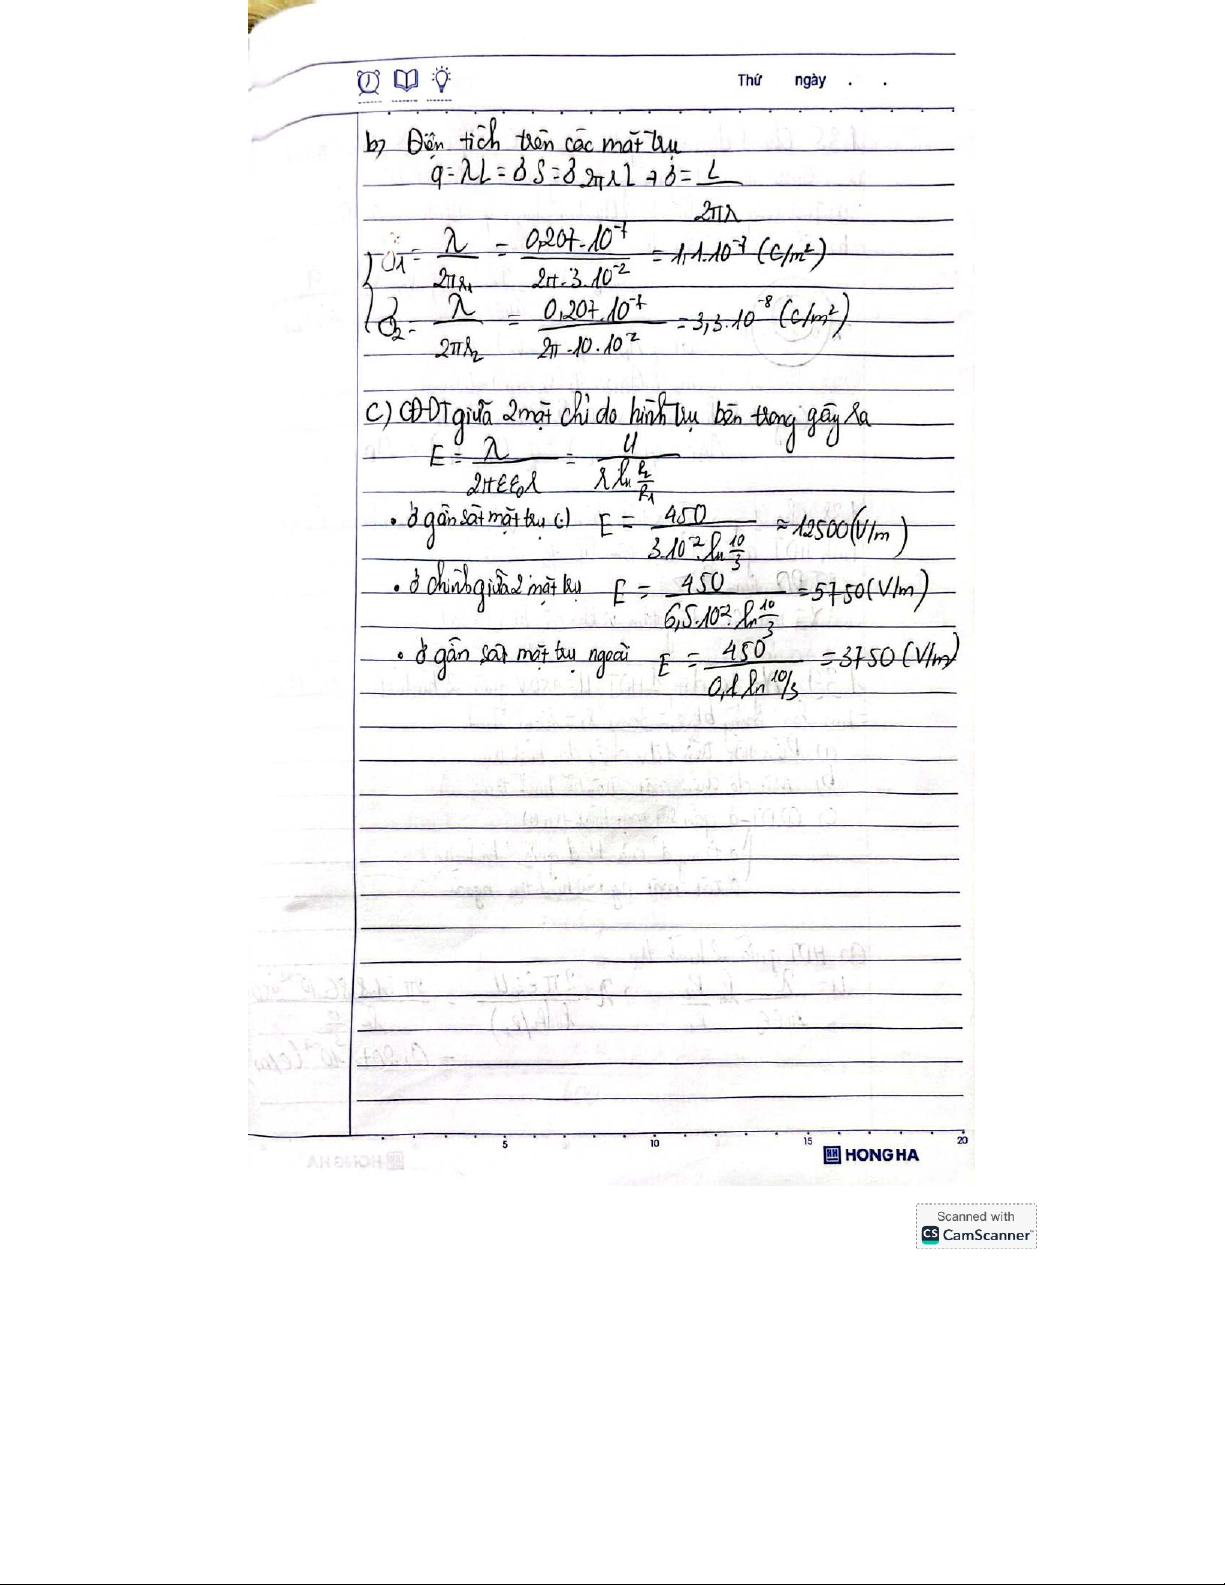 Thứ ngày . .
b) Điện tích trên các mặt trụ
q = λL = δS = δ 2πrL → δ = L / 2πr
σ1 = λ / 2πr1 = 0,207.10^-7 / 2π.3.10^-2 = 1,1.10^-7 (C/m²)
σ2 = λ / 2πr2 = 0,207.10^-7 / 2π.10.10^-2 = 3,3.10^-8 (C/m²)
c) CĐĐT giữa 2 mặt chỉ do hình trụ bên trong gây ra
E = λ / 2πεε0r = U / r ln R2/R1
• ở gần sát mặt trụ (-) E = 450 / 3.10^-2.ln 10/3 ≈ 12500 (V/m)
• ở chính giữa 2 mặt trụ E = 450 / 6,5.10^-2.ln 10/3 = 5750 (V/m)
• ở gần sát mặt trụ ngoài E = 450 / 0,1.ln 10/3 = 3750 (V/m)
5 10 15 20
HONG HA
Scanned with
CS CamScanner